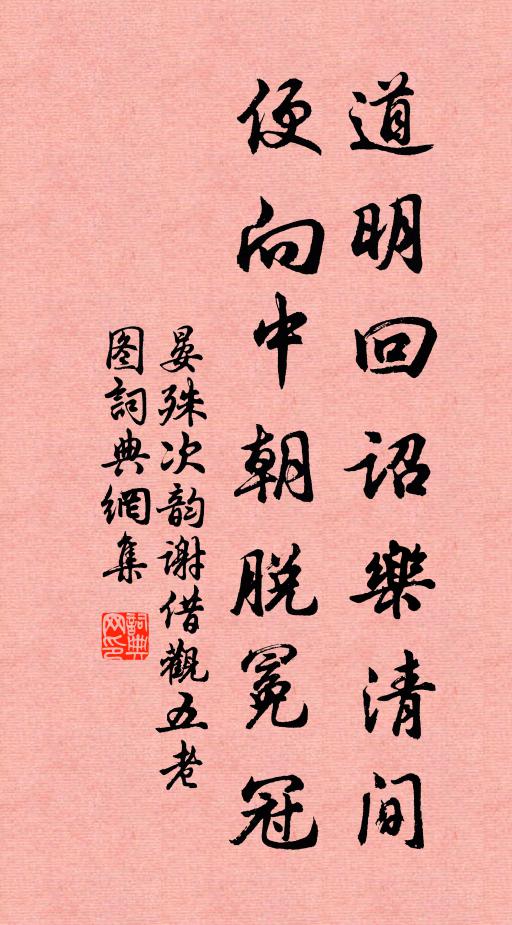 道明回詔樂清间
便向中朝脱冕冠
晏殊次韵谢借觀五老
图詞典網集
詞典网印